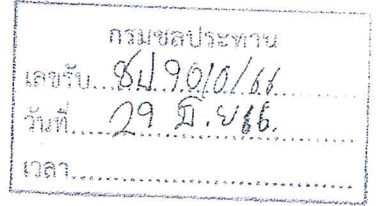 กรมชลประทาน
เลขรับ...ชป.9010/66.......
วันที่....29 มิ.ย 66.......
เวลา...............................